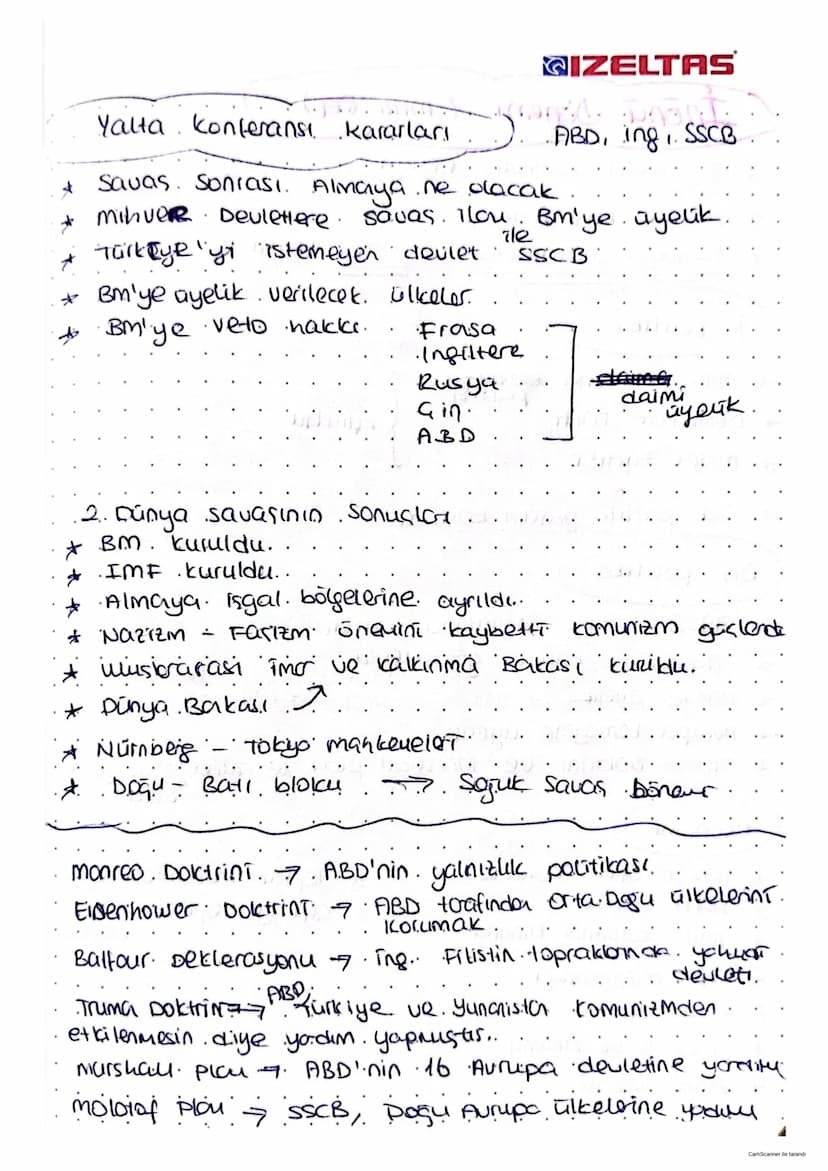 IZELTAS
Yalta Konferansı Kararları ABD, ing, SSCB
* Savaş Sonrası Almaya ne olacak
* mihver Devletlere savaş ilanı ile Bm'ye üyelik
* Türkiye'yi istemeyen devlet SSCB
* Bm'ye üyelik verilecek ülkeler
* Bm'ye veto hakkı Frasa
İngiltere
Rusya
Çin
ABD
daimi
üyelik
2. Dünya savaşının sonuçları
* BM kuruldu.
* IMF kuruldu.
* Almaya işgal bölgelerine ayrıldı.
* Nazizm - Faşizm önemini kaybetti komunizm güçlendi
* uluslararası imar ve kalkınma Bakası kuruldu.
* Dünya Bakası ↗
* Nürnberg - Tokyo mahkemeleri
* Doğu - Batı bloku → Soğuk Savaş Dönemi
monreo Doktrini → ABD'nin yalnızlık politikası.
Eisenhower Doktrini → ABD tarafından Orta Doğu ülkelerini
korumak
Balfour Deklerasyonu → ing. Filistin topraklarında yahudi
devleti.
Truma Doktrini → ABD, Türkiye ve Yunanistan komunizmden
etkilenmesin diye yardım yapmıştır.
Marshall planı → ABD'nin 16 Avrupa devletine yardımı
molotof planı → SSCB, Doğu Avrupa ülkelerine yardımı
CamScanner ile tarandı